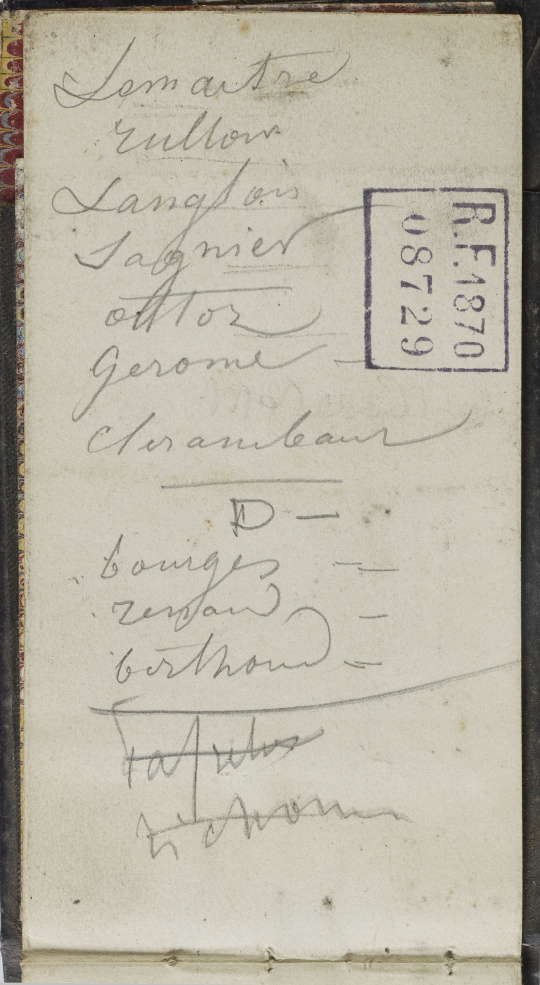 Lemaitre
rullon
Langlois
Sagnier
ottoz
Gerome –
Clerambaur
D –
bourges –
renaud –
berthoud =
R.F.1870
08729